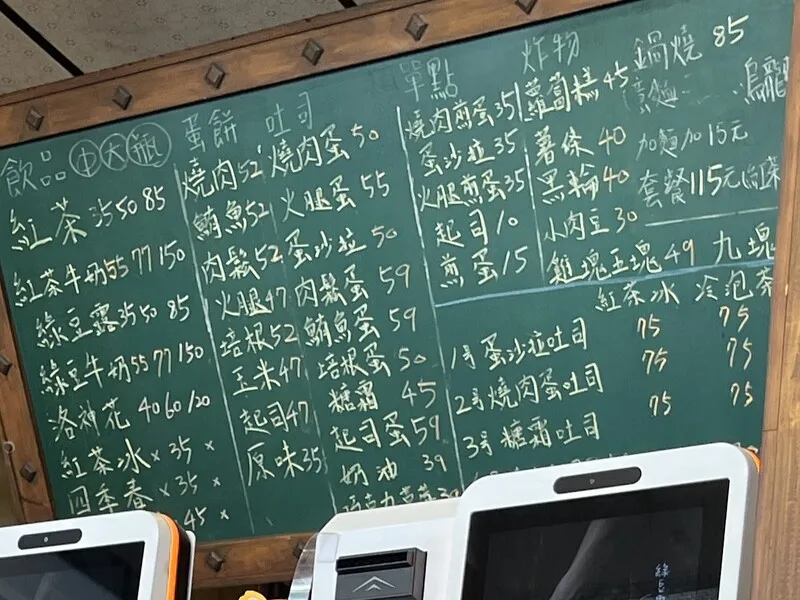 飲品 中 大 瓶
紅茶 35 50 85
紅茶牛奶 55 77 150
綠豆露 35 50 85
綠豆牛奶 55 77 150
洛神花 40 60 120
紅茶冰 × 35 ×
四季春 × 35 ×
45 ×
蛋餅
燒肉 52
鮪魚 52
肉鬆 52
火腿 47
培根 52
玉米 47
起司 47
原味 35
吐司
燒肉蛋 50
火腿蛋 55
蛋沙拉 50
肉鬆蛋 59
鮪魚蛋 59
培根蛋 50
糖霜 45
起司蛋 59
奶油 39
單點
燒肉煎蛋 35
蛋沙拉 35
火腿煎蛋 35
起司 10
煎蛋 15
炸物
蘿蔔糕 45
薯條 40
黑輪 40
小肉豆 30
雞塊五塊 49 九塊
鍋燒 85
意麵 烏龍
加麵加15元
套餐115元
紅茶冰 冷泡茶
1号 蛋沙拉吐司 75 75
2号 燒肉蛋吐司 75 75
3号 糖霜吐司 75 75